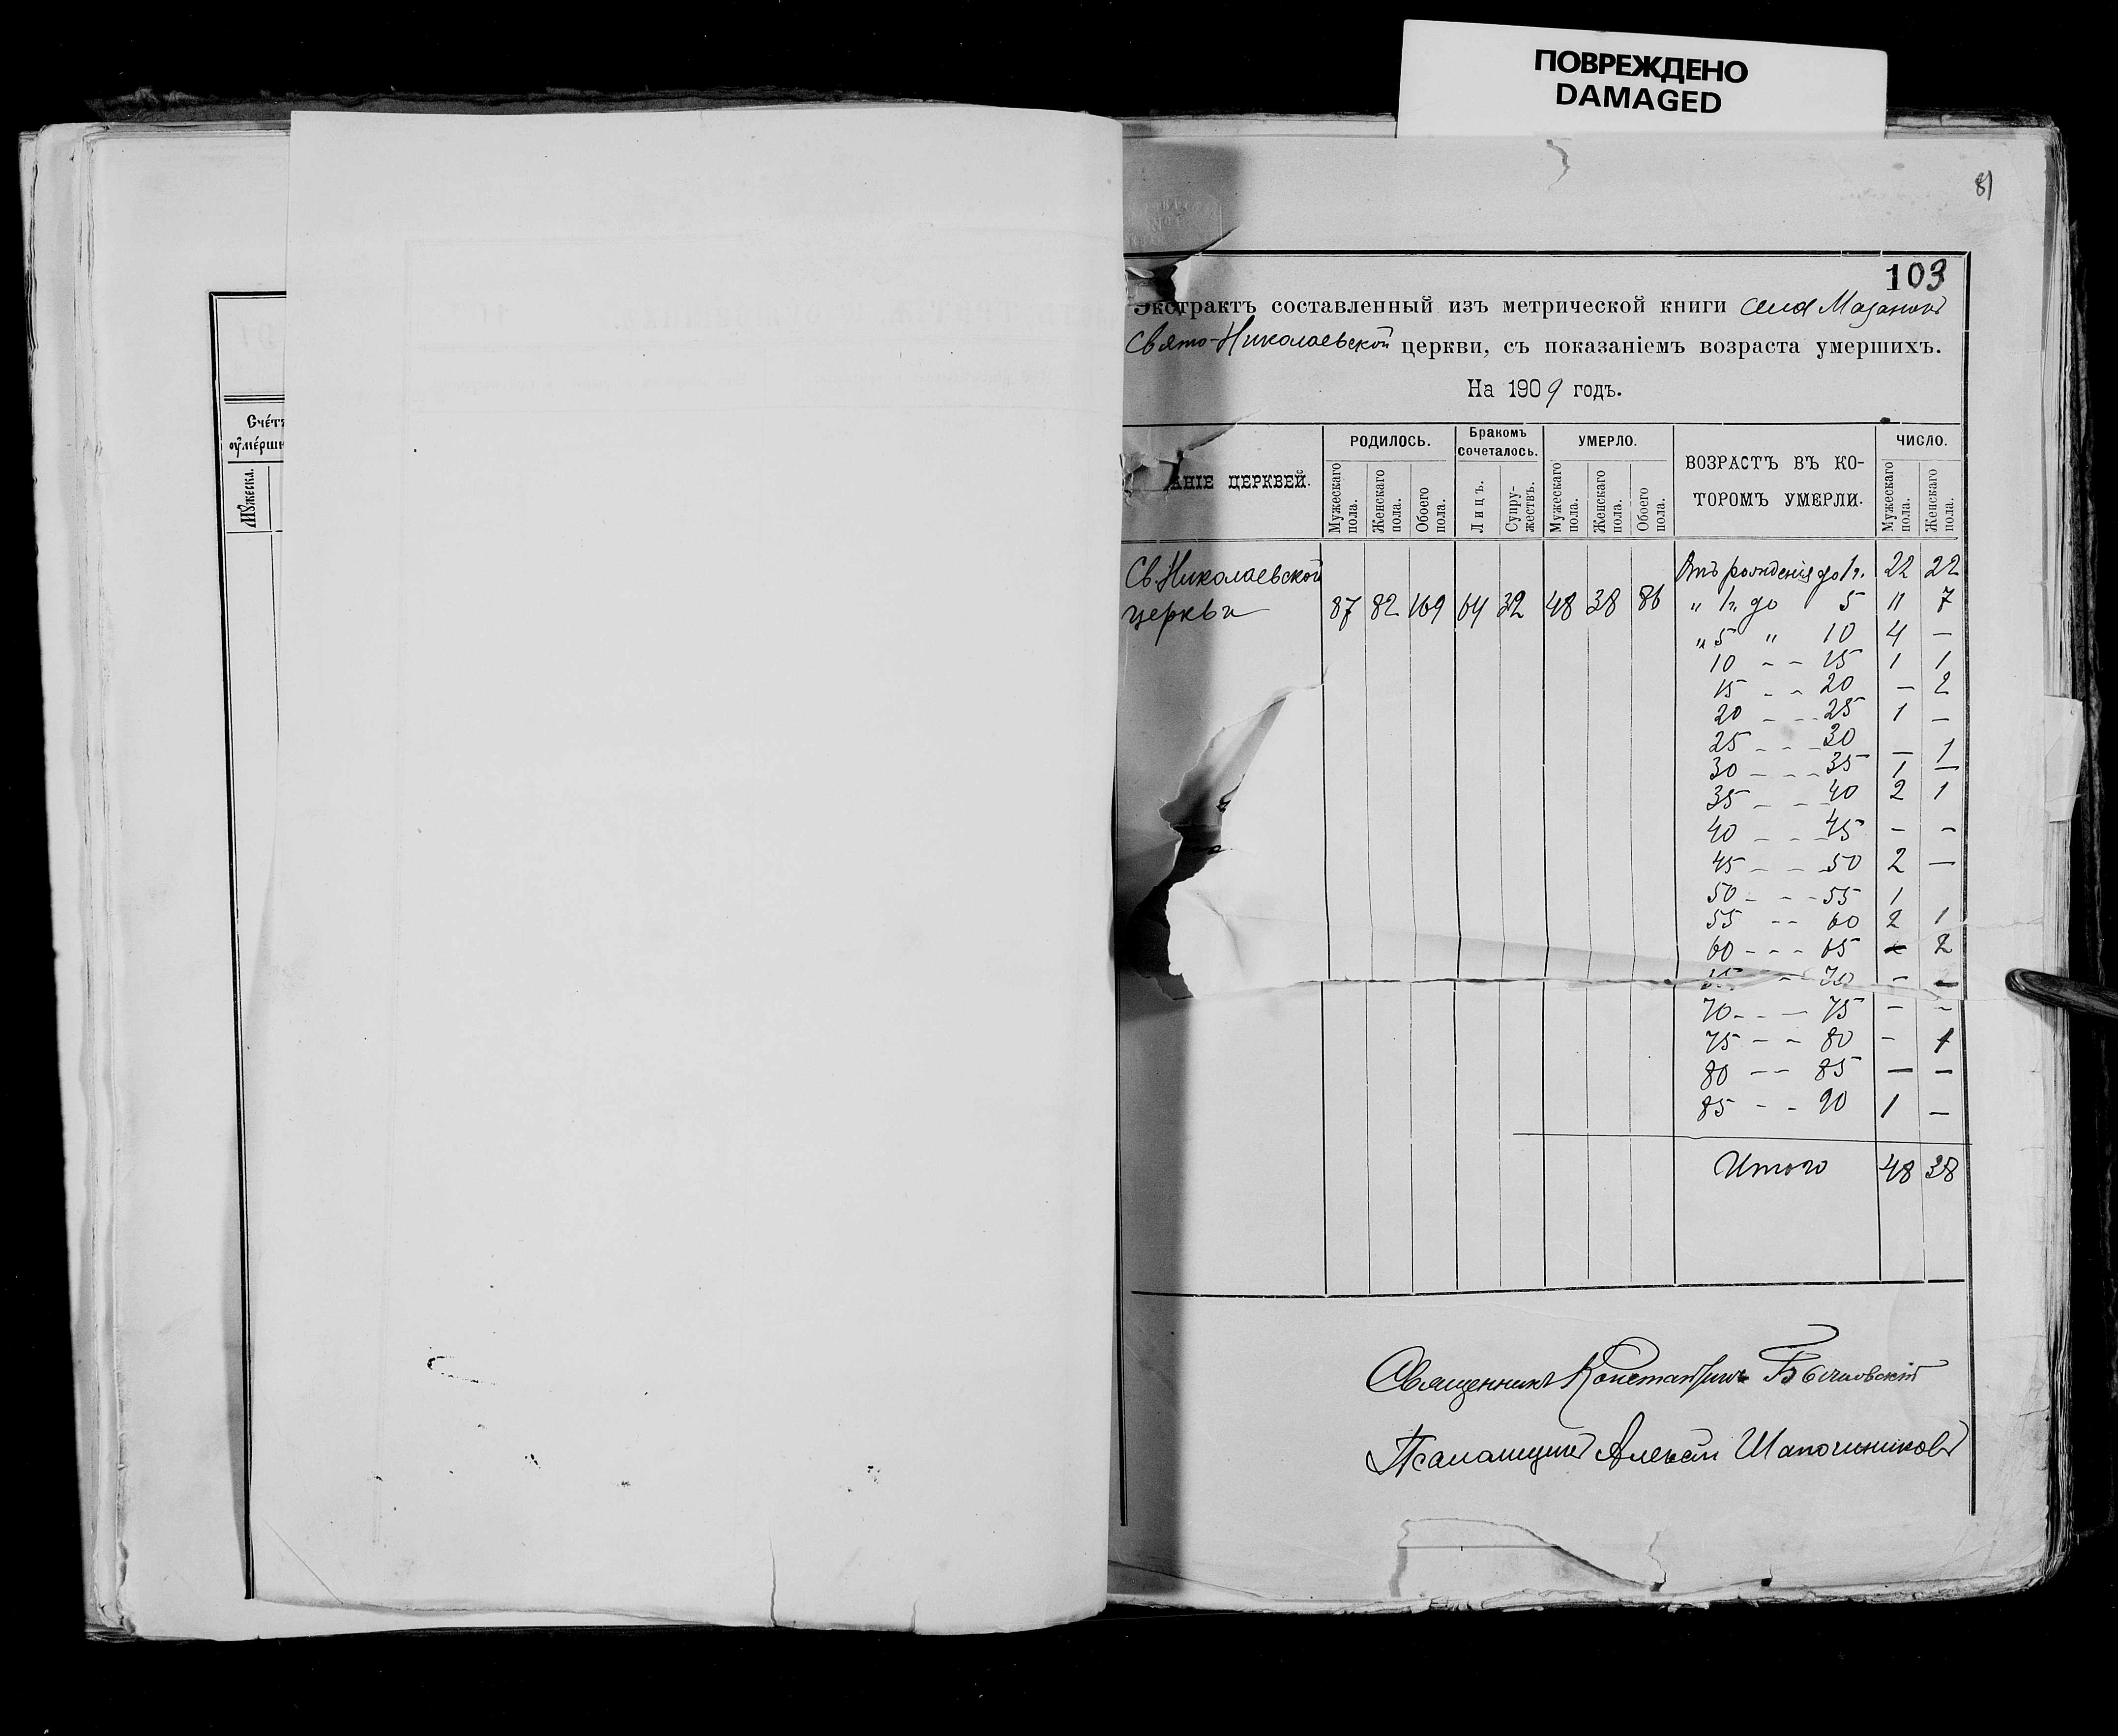 ПОВРЕЖДЕНО
DAMAGED
81
103
Счéтъ
оумéрши
Мꙋжеска.
Экстрактъ составленный изъ метрической книги села Мазанов
Свято-Николаевской церкви, съ показаніемъ возраста умершихъ.
На 1909 годъ.
АНІЕ ЦЕРКВЕЙ. РОДИЛОСЬ. Бракомъ сочеталось. УМЕРЛО. ВОЗРАСТЪ ВЪ КО- ТОРОМЪ УМЕРЛИ. ЧИСЛО.
Мужескаго пола. Женскаго пола. Обоего пола. Лицъ. Супру- жествъ. Мужескаго пола. Женскаго пола. Обоего пола. Мужескаго пола. Женскаго пола.
Св. Николаевской Отъ рожденія до 1 г. 22 22
церкви 87 82 169 64 32 48 38 86 " 1 г. до 5 11 7
" 5 " 10 4 —
10 - - 15 1 1
15 - - 20 — 2
20 - - 25 1 —
25 - - 30 — 1
30 - - - 35 1 —
35 - - 40 2 1
40 - - - 45 - -
45 - - - 50 2 —
50 - - - 55 1
55 - - 60 2 1
60 - - - 65 2
- 70 -
70 - - - 75 - -
75 - - 80 - 1
80 - - 85 — —
85 - - 90 1 —
Итого 48 38
Священникъ Константинъ
Псаломщикъ Алексѣй Шапошниковъ